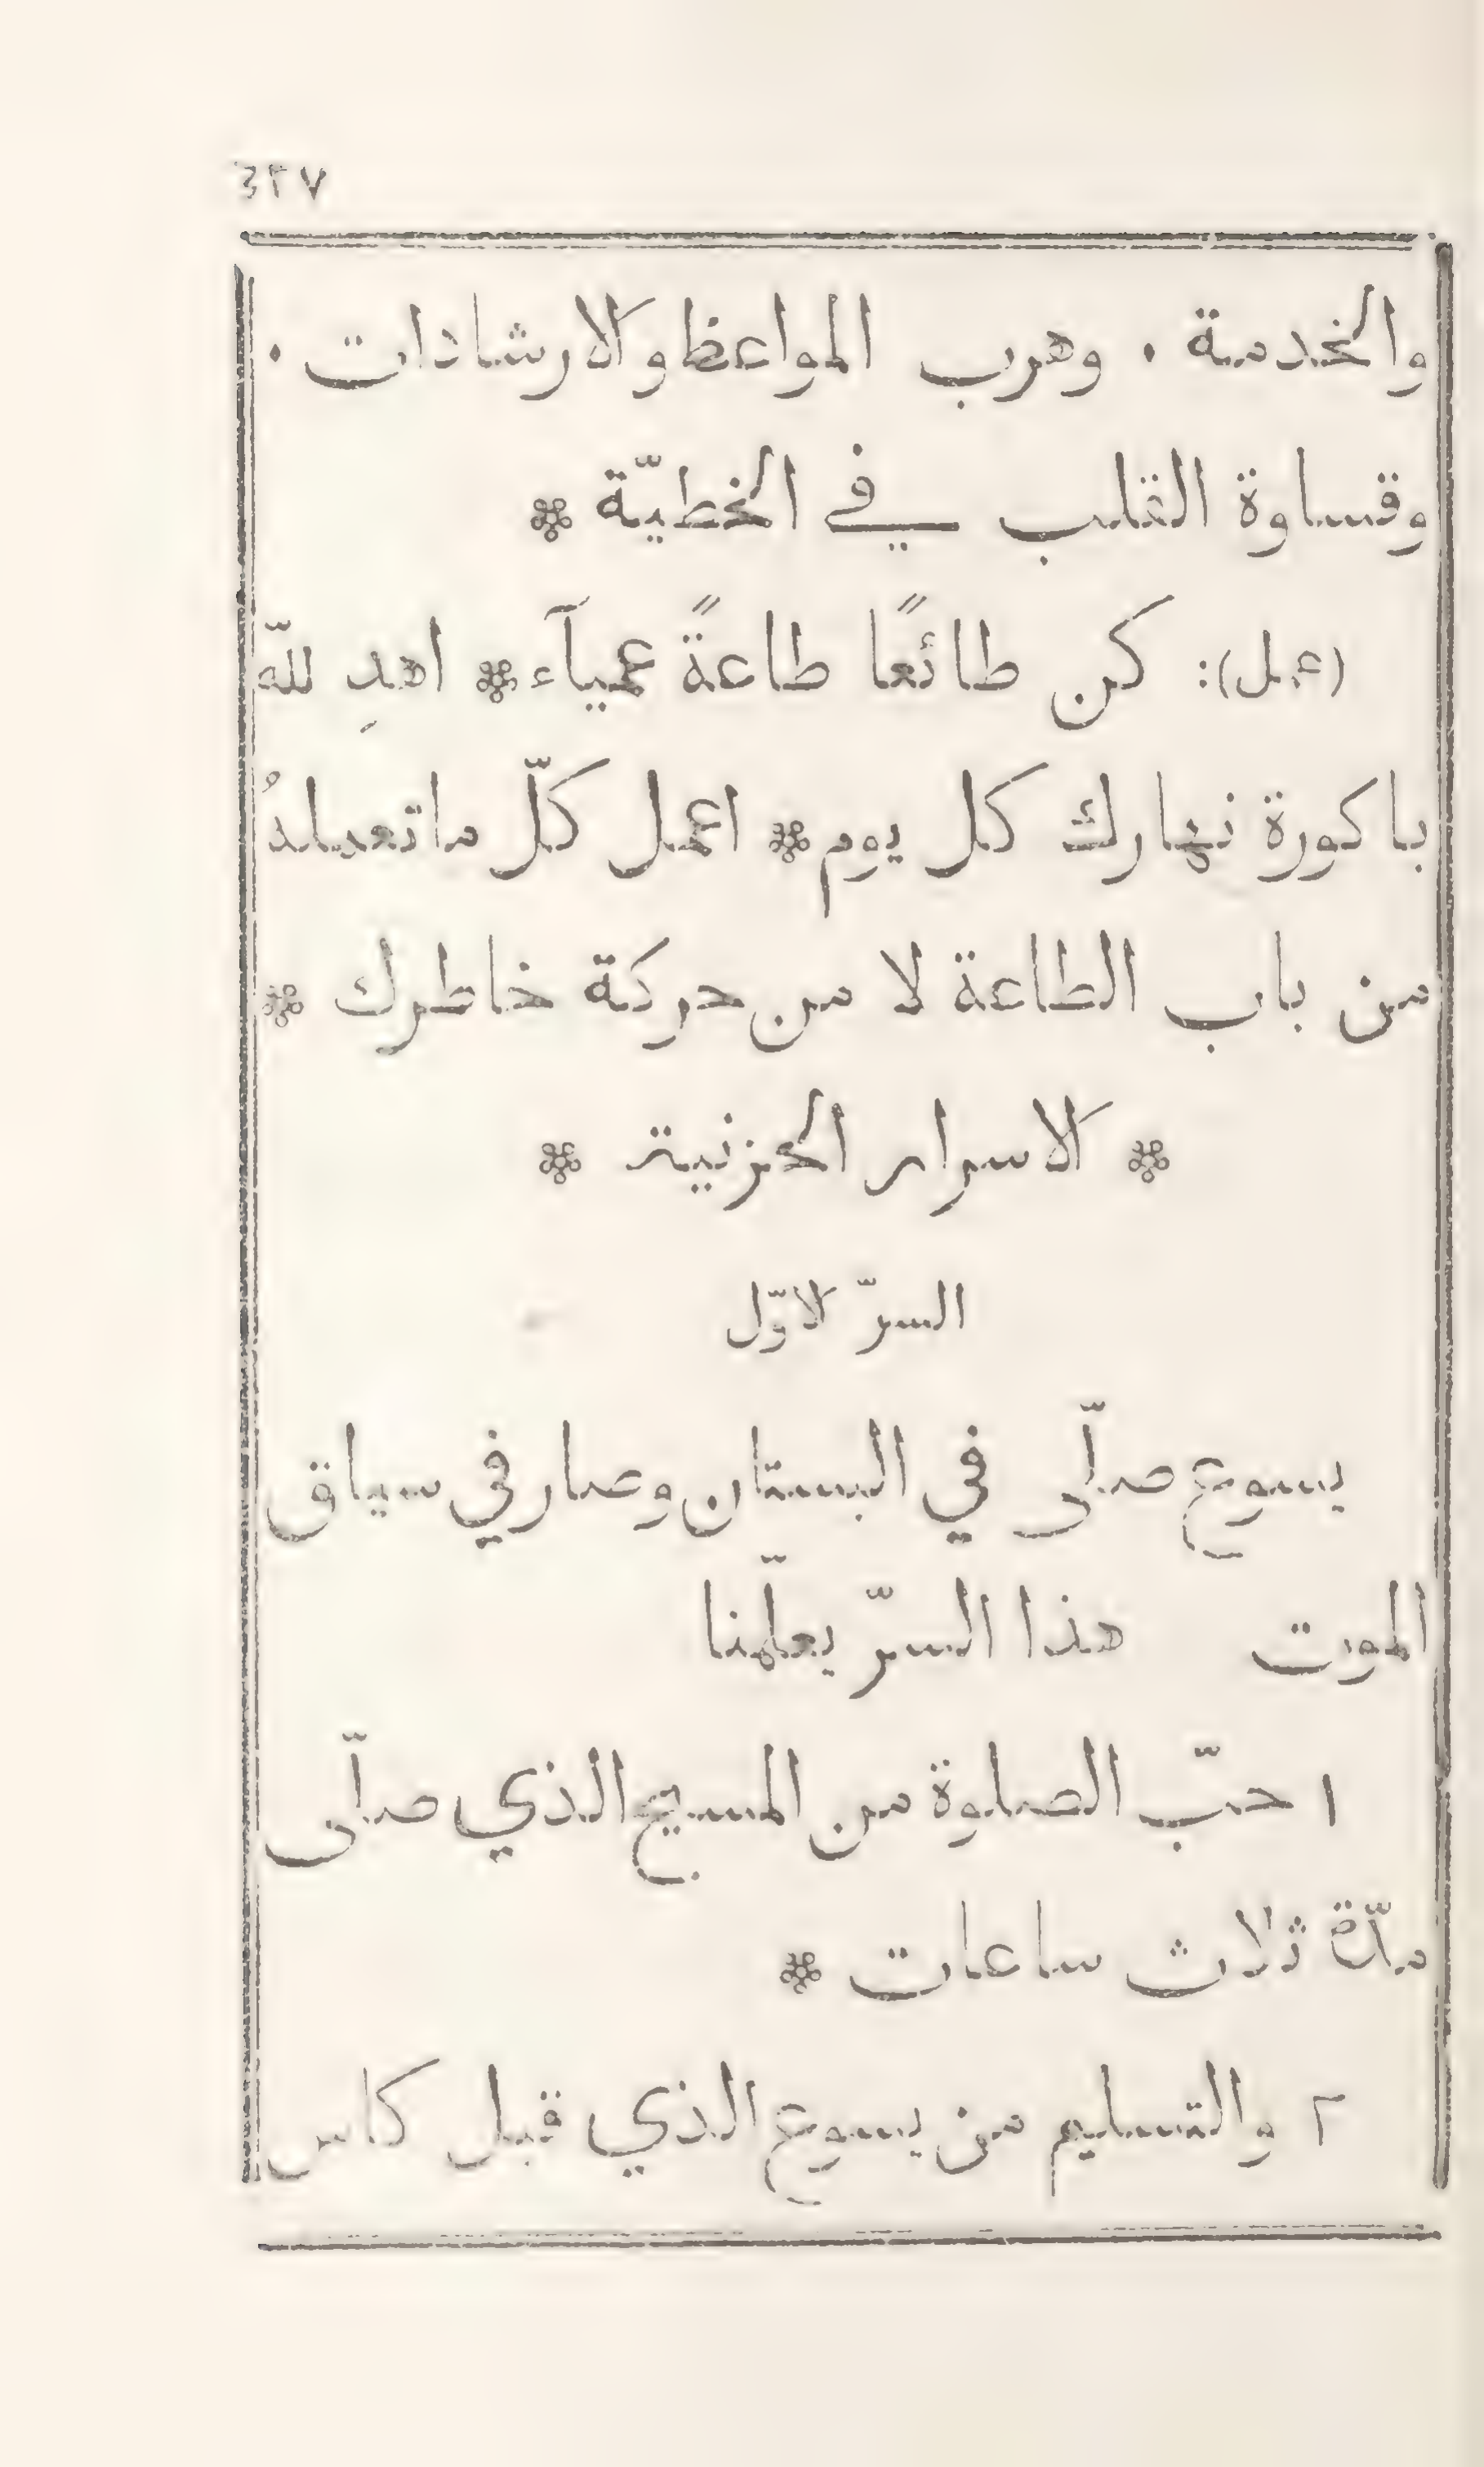 ٣٢٧
والخدمة ٠ وهرب المواعظ والارشادات ٠
وقساوة القلب في الخطيّة *
(عمل): كن طائعًا طاعةً عميآء * اهدِ للّه
باكورة نهارك كل يوم * اعمل كلّ ما تعملهُ
من باب الطاعة لا من حركة خاطرك *
* الاسرار الحزنية *
السرّ الاوّل
يسوع صلّى في البستان وصار في سياق
الموت هذا السرّ يعلّمنا
١ حبّ الصلوة من المسيح الذي صلّى
مدّة ثلاث ساعات *
٢ والتسليم من يسوع الذي قبل كاس